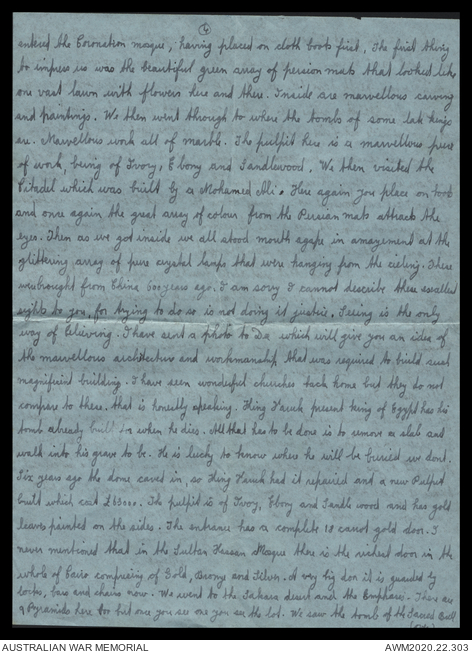 4
entered the Coronation mosque, having placed on cloth boots first, The first thing
to impress us was the beautiful green array of persion mats that looked like
one vast lawn with flowers here and there. Inside are marvellous carving
and paintings. We then went through to where the tombs of some late kings
are. Marvellous work all of marble. The pulpit here is a marvellous piece
of work, being of Ivory, Ebony and Sandlewood, We then visited the
Citadel which was built by a Mohamed Ali. Here again you place on boots
and once again the great array of colour from the Persian mats attracts the
eyes. Then as we got inside we all stood mouth agape in amazement at the
glittering array of pure crystal lamps that were hanging from the cieling. These
were brought from China 600 years ago. I am sorry I cannot describe these excelled
sights to you, for trying to do so is not doing it justice. Seeing is the only
way of believing. I have sent a photo to De which will give you an idea of
the marvellous architecture and workmanship that was required to build such
magnificent building. I have seen wonderful churches back home but they do not
compare to these. that is honestly speaking. King Farouk present king of Egypt has his
tomb already built for when he dies. All that has to be done is to remove a slab and
walk into his grave to be. He is lucky to know where he will be burried we dont.
Six years ago the dome caved in, so King Farouk had it repaired and a new Pulpit
built which cost £65000. The pulpit is of Ivory, Ebony and Sandle wood and has gold
leaves painted on the sides. The entrance has a complete 18 carrot gold door. I
never mentioned that in the Sultan Hassan Mosque there is the richest door in the
whole of Cairo comprising of Gold, Bronze and Silver. A very big door it is guarded by
locks, bars and chains now. We went to the Sahara desert and the Emphasis. There are
9 Pyramids here too but once you see one you see the lot. We saw the tomb of the Sacred Bull
AUSTRALIAN WAR MEMORIAL
AWM2020.22.303